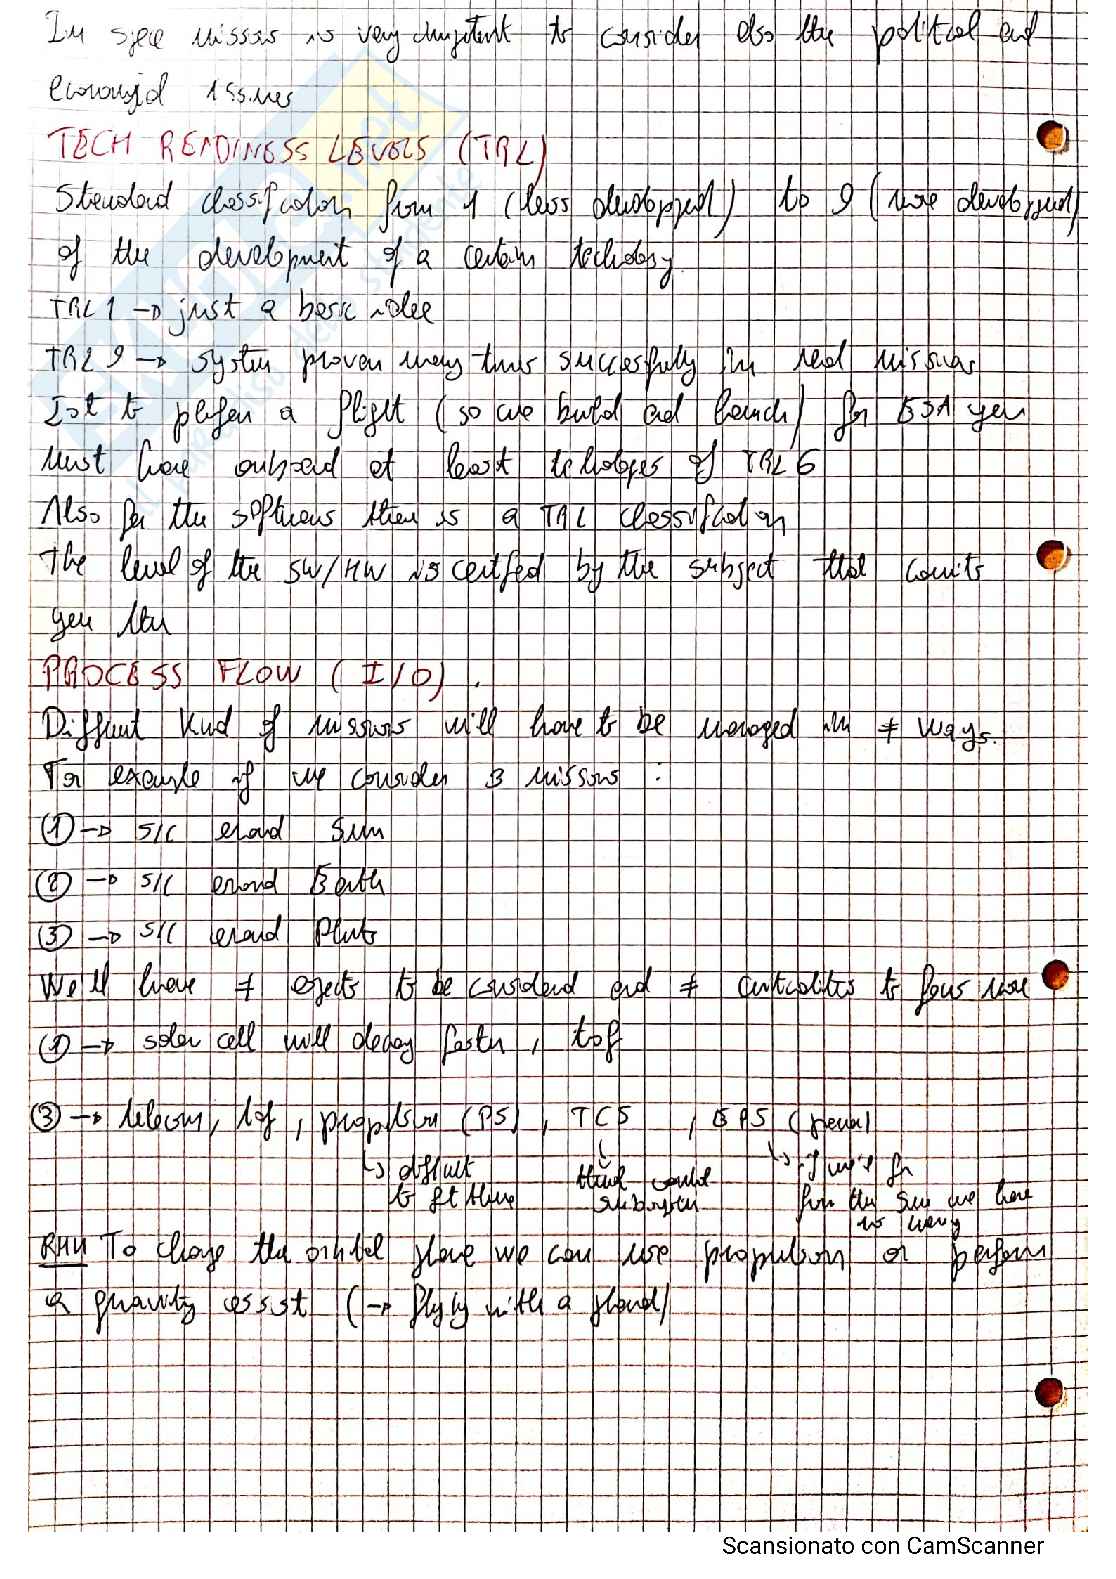 In space missions is very important to consider also the political and
economical issues
TECH READINESS LEVELS (TRL)
Standard classification from 1 (less developped) to 9 (more developped)
of the development of a certain technology
TRL 1 → just a basic idea
TRL 9 → system proven many times successfully in real missions
to perform a flight (so we build and launch) for ESA you
must have onboard at least technologies of TRL 6
Also for the softwares there is a TRL classification
The level of the SW/HW is certified by the subject that
PROCESS FLOW (I/O)
Different kind of missions will have to be managed in ≠ ways.
For example if we consider 3 missions :
① → S/C around Sun
② → S/C around Earth
③ → S/C around Pluto
We'll have ≠ aspects to be considered and ≠ criticalities to focus more
① → solar cell will decay faster, tof
③ → telecom, tof, propulsion (PS), TCS, EPS (power)
↳ difficult to get there
thermal control subsystem
↳ if we're far from the Sun we have no energy
RMK To change the orbital plane we can use propulsion or perform
a gravity assist (→ flyby with a planet)
Scansionato con CamScanner